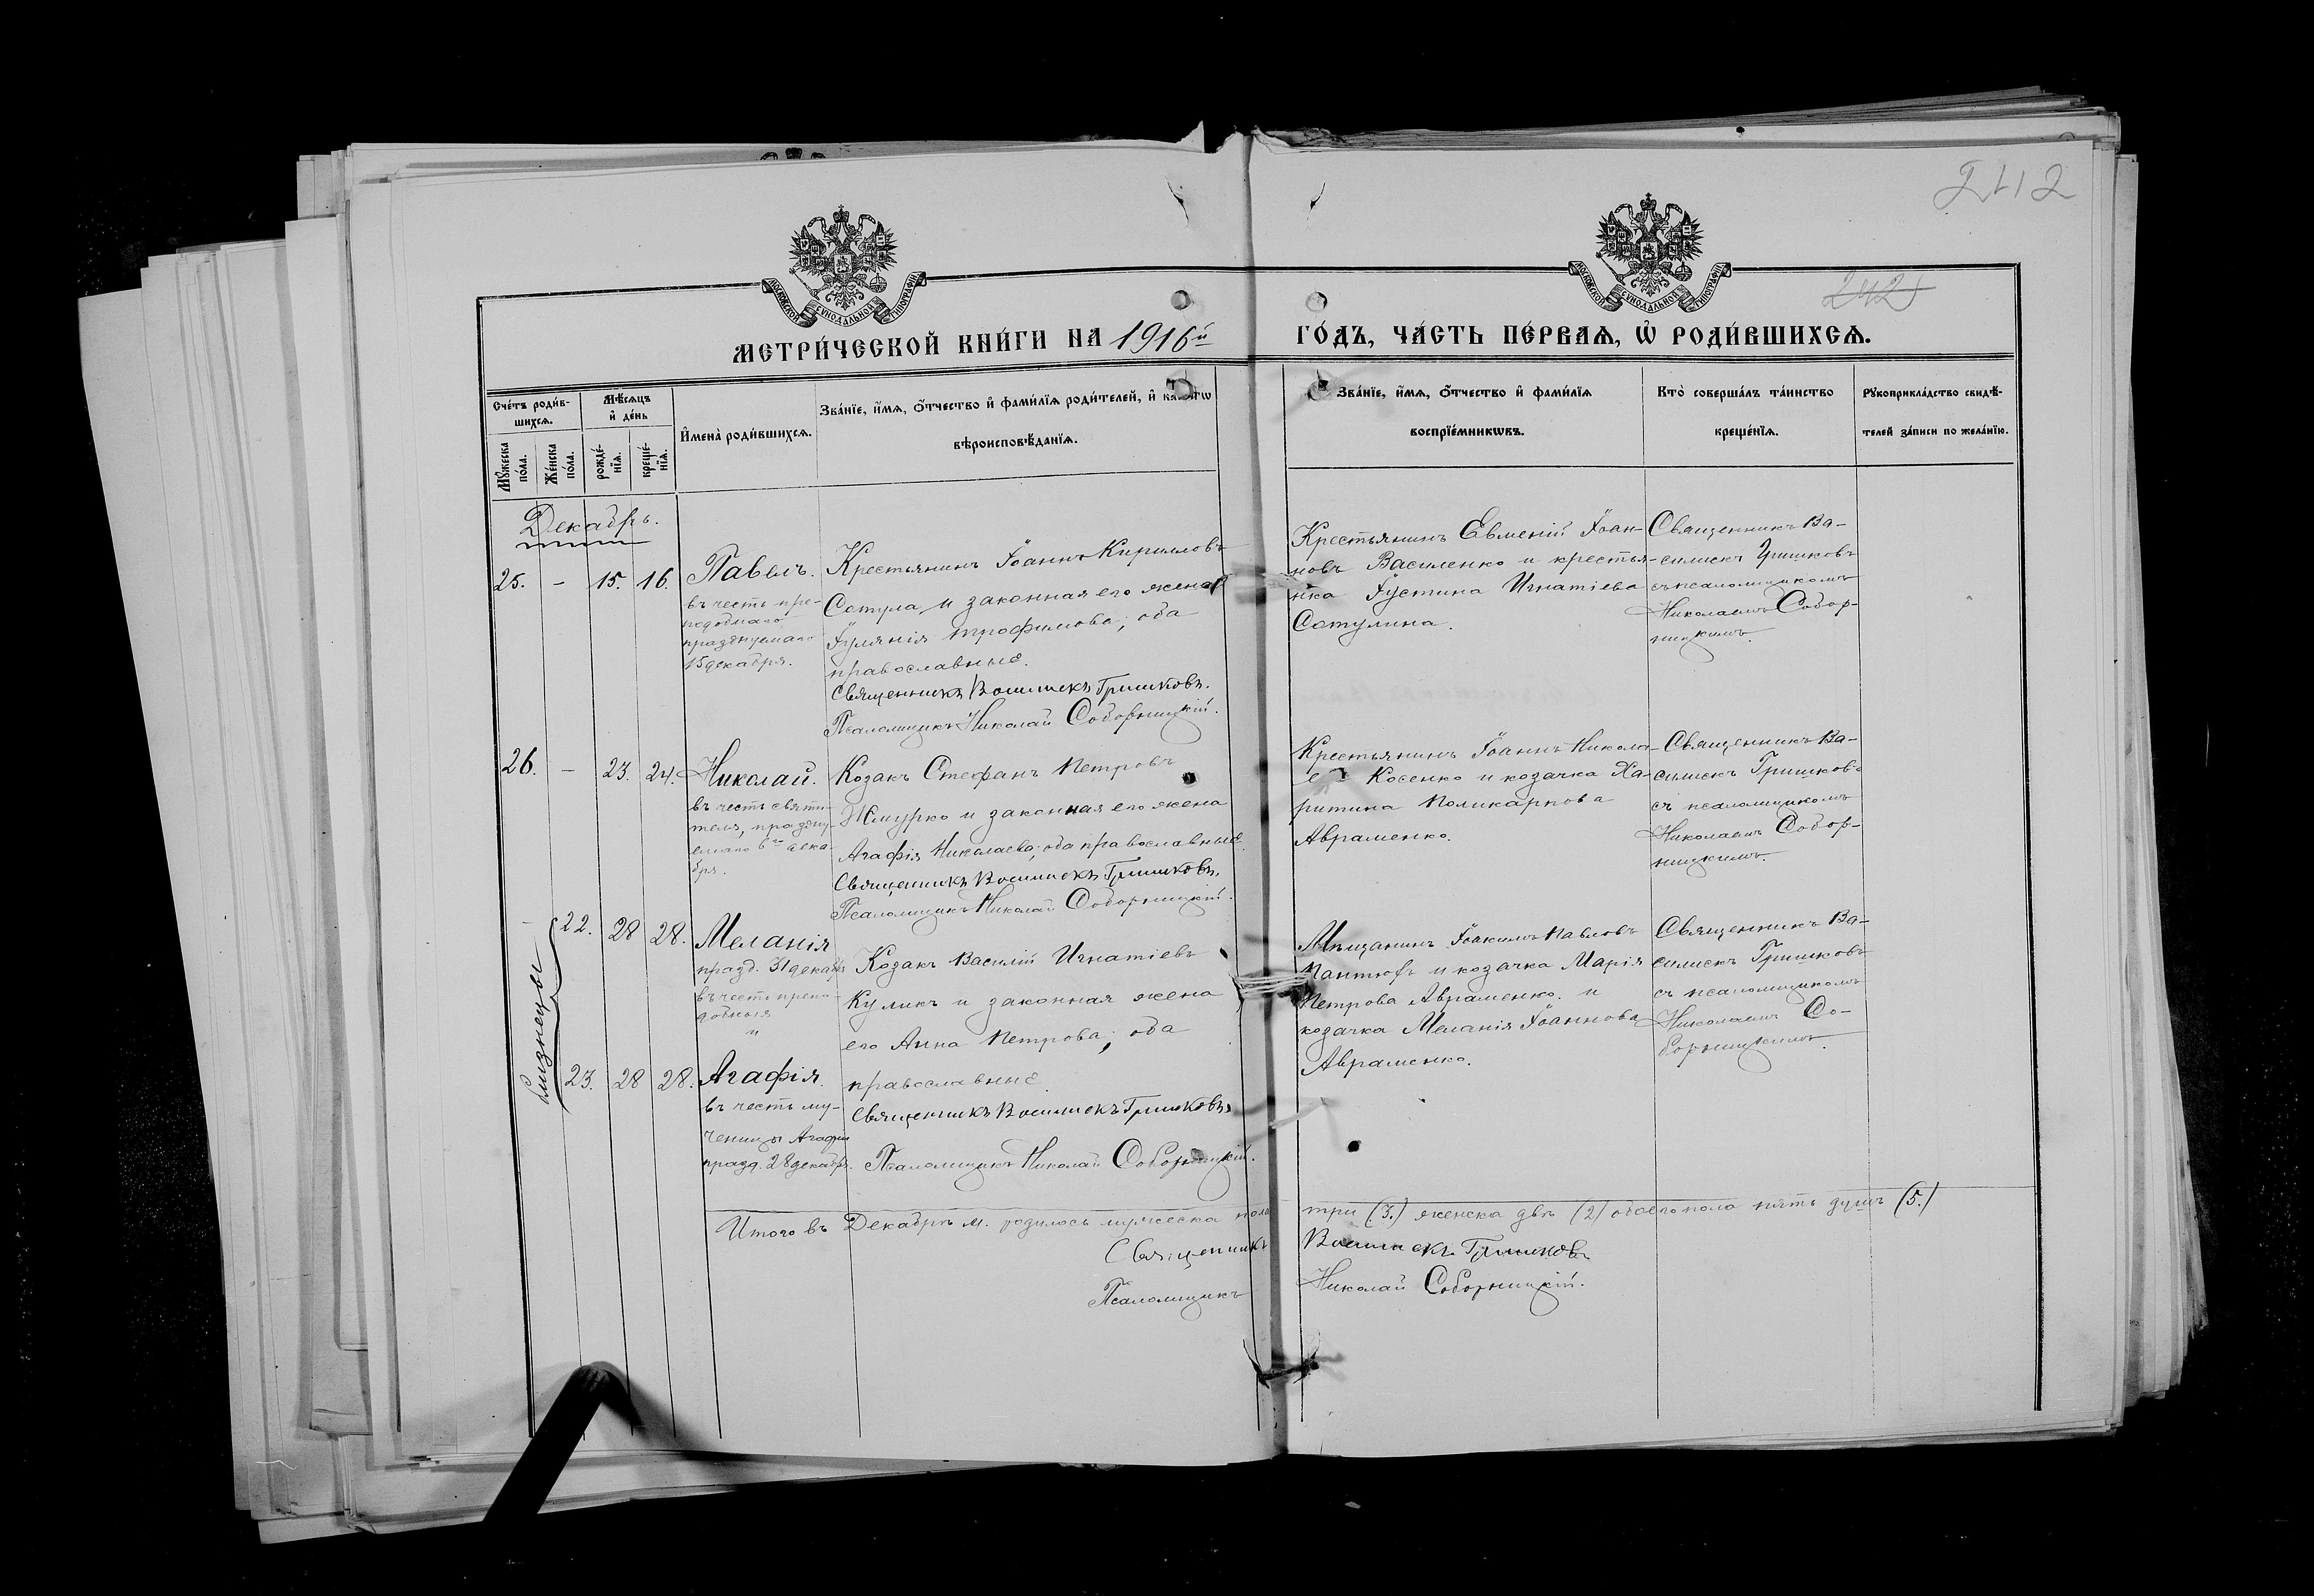 2412
242
МОСКОВСКОЙ СѴНОДАЛЬНОЙ ТИПОГРАФІИ
МОСКОВСКОЙ СѴНОДАЛЬНОЙ ТИПОГРАФІИ
МЕТРИ́ЧЕСКОЙ КНИ́ГИ НА 1916й
ГО́ДЪ, ЧА́СТЬ ПЕ́РВАѦ, Ѽ РОДИ́ВШИХСѦ.
Сче́тъ роди́в-
шихсѧ.
Мꙋ́жеска по́ла.
Же́нска по́ла.
Мѣ́сѧцъ
и҆ де́нь
рожде́-
нїѧ.
креще́-
нїѧ.
И҆мена̀ роди́вшихсѧ.
Зва́нїе, и҆́мѧ, ѻ҆́тчество и҆ фами́лїѧ роди́телей, и҆
вѣроисповѣ́данїѧ.
Зва́нїе, и҆́мѧ, ѻ҆́тчество и҆ фами́лїѧ
воспрїе́мникѡвъ.
Кто̀ соверша́лъ та́инство
креще́нїѧ.
Рꙋкоприкла́дство свидѣ́-
телей за́писи по жела́нїю.
Декабрь.
25. – 15. 16.
Павелъ.
въ честь пре-
подобнаго
празднуемаго
15 декабря.
Крестьянинъ Іоаннъ Кирилловъ
Сотула, и законная его жена
Іуліанія Трофимова; оба
православные.
Священникъ Василискъ Гришковъ.
Псаломщикъ Николай Соборницкій.
Крестьянинъ Евменій Іоан-
новъ Василенко и крестья-
нка Іустина Игнатіева
Сотулина.
Священникъ Ва-
силискъ Гришковъ
съ псаломщикомъ
Николаемъ Собор-
ницкимъ.
26. – 23. 24.
Николай.
въ честь святи-
теля, праздну-
емаго 6го дека-
бря.
Козакъ Стефанъ Петровъ
Жмурко и законная его жена
Агафія Николаева; оба православные.
Священникъ Василискъ Гришковъ.
Псаломщикъ Николай Соборницкій.
Крестьянинъ Іоаннъ Никола-
Косенко и козачка Ха-
ритина Поликарпова
Авраменко.
Священникъ Ва-
силискъ Гришковъ
съ псаломщикомъ
Николаемъ Собор-
ницкимъ.
близнецы
22. 28 28.
Меланія
празд. 31 декабря
въ честь препо-
добныя
и
23. 28 28.
Агафія.
въ честь му-
ченицы Агафіи
празд. 28 декабр.
Козакъ Василій Игнатіевъ
Куликъ и законная жена
его Анна Петрова; оба
православные.
Священникъ Василискъ Гришковъ
Псаломщикъ Николай Соборницкій.
Мѣщанинъ Іоакимъ Павловъ
и козачка Марія
Петрова Авраменко. и
козачка Меланія Іоаннова
Авраменко.
Священникъ Ва-
силискъ Гришковъ
съ псаломщикомъ
Николаемъ Со-
борницкимъ.
Итого въ Декабрѣ м. родилось мужеска пола три (3.) женска двѣ (2) обоего пола пять душъ (5.)
Священникъ Василискъ Гришковъ
Псаломщикъ Николай Соборницкій.